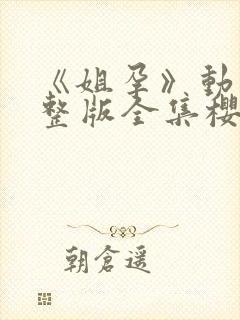 《姐孕》動
整版全集櫻
朝倉遥